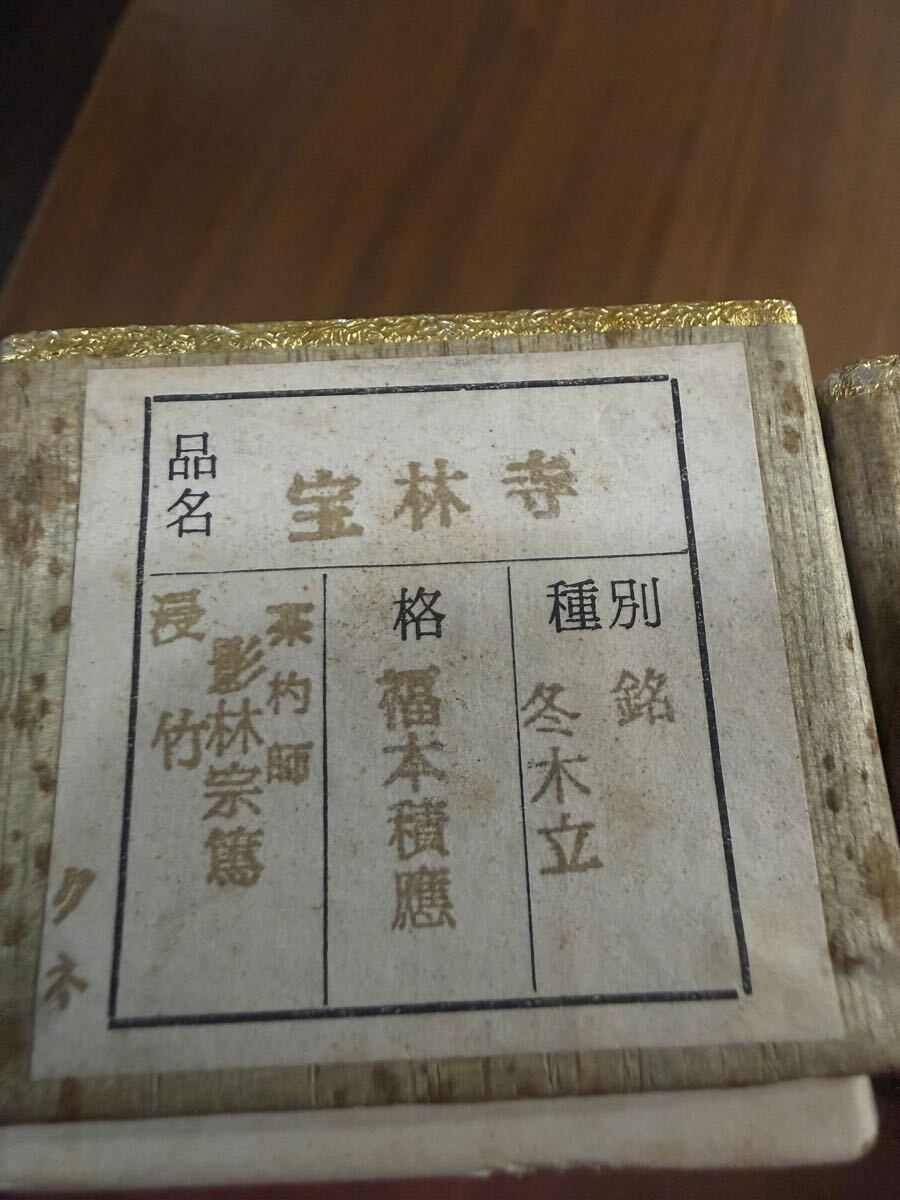 品名
宝林寺
種別
銘
冬木立
格
福本積應
茶杓師
影林宗篤
浸竹
クネ